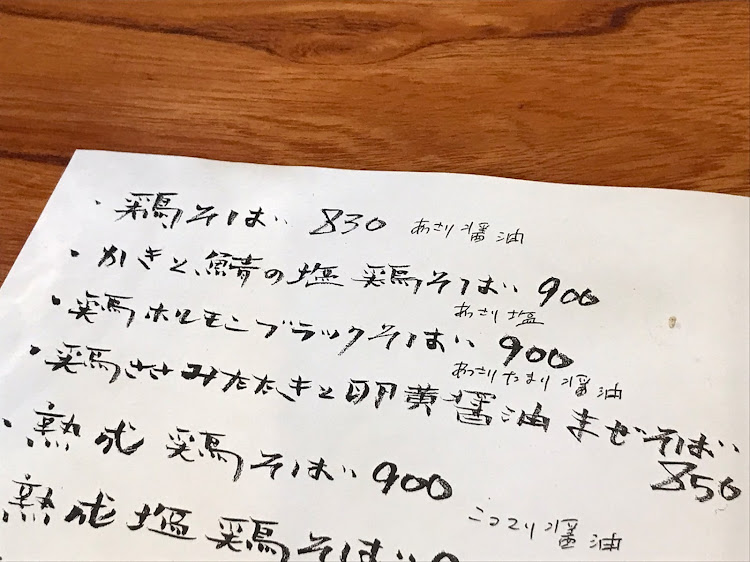 ・鶏そば 830 あっさり醤油
・かきと鯖の塩鶏そば 900
あっさり塩
・鶏ホルモンブラックそば 900
あっさりたまり醤油
・鶏ささみたたきと卵黄醤油まぜそば
850
・熟成鶏そば 900
こってり醤油
熟成塩鶏そば